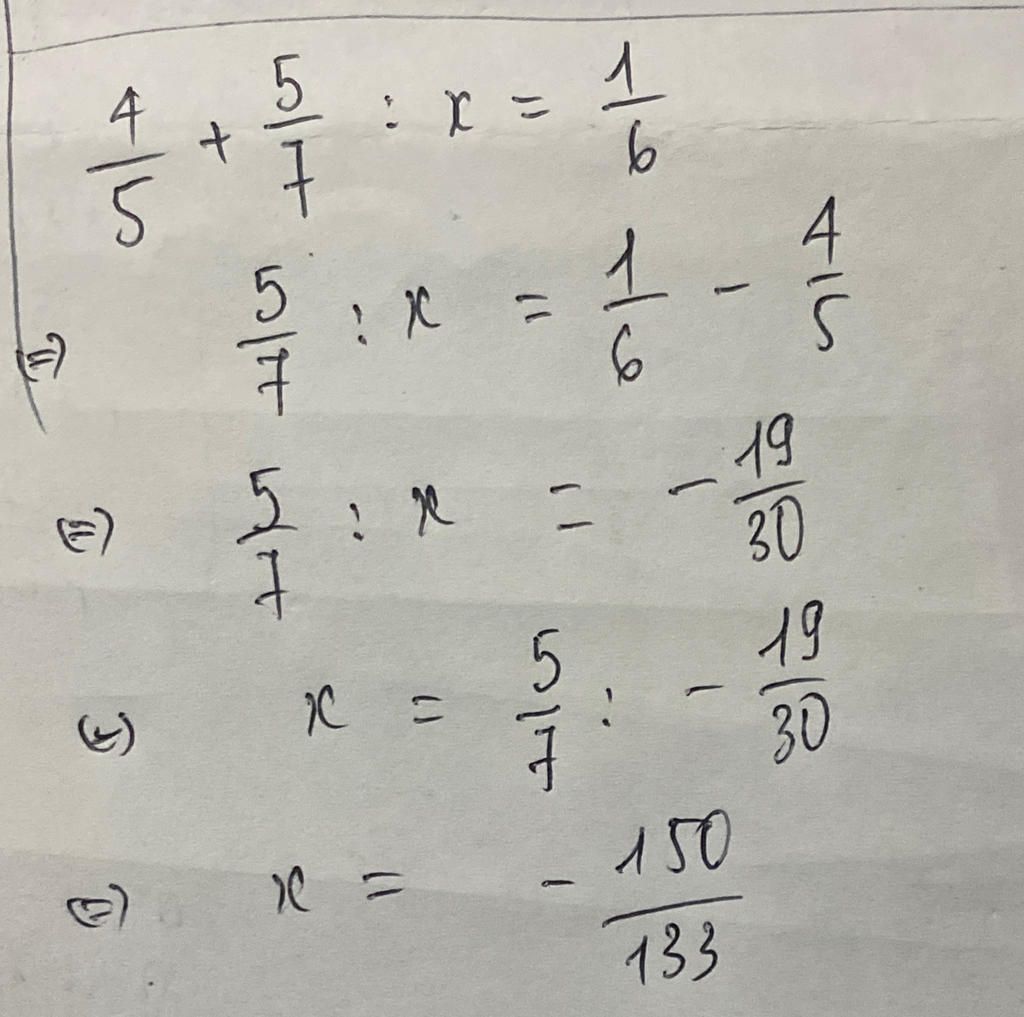 4/5 + 5/7 : x = 1/6
(=) 5/7 : x = 1/6 - 4/5
(=) 5/7 : x = - 19/30
(=) x = 5/7 : - 19/30
(=) x = - 150/133